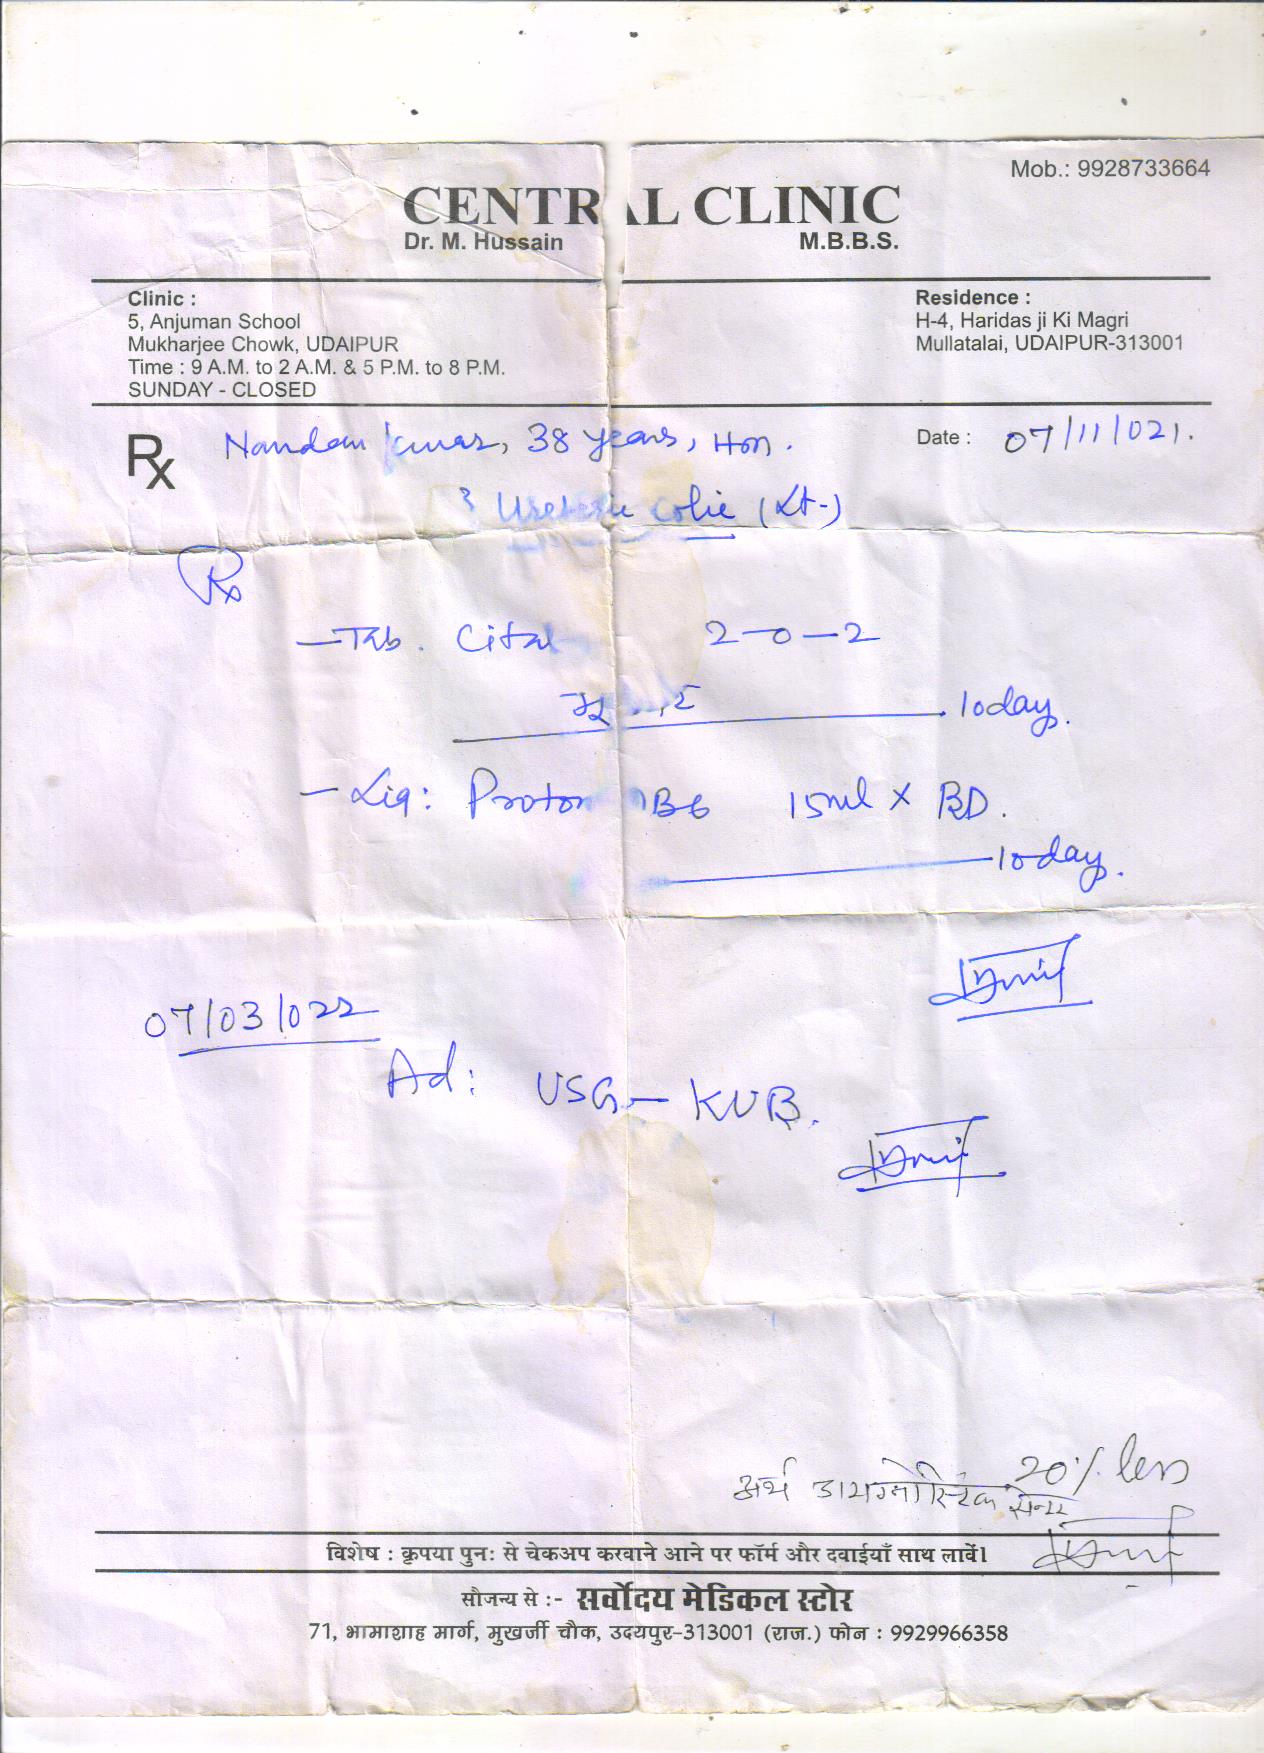 Mob.: 9928733664
CENTRAL CLINIC
Dr. M. Hussain M.B.B.S.
Clinic :
5, Anjuman School
Mukharjee Chowk, UDAIPUR
Time : 9 A.M. to 2 A.M. & 5 P.M. to 8 P.M.
SUNDAY - CLOSED
Residence :
H-4, Haridas ji Ki Magri
Mullatalai, UDAIPUR-313001
Rx Nandan Kumar, 38 years, Hon.
Date : 07/11/021.
Ureteric colic (Lt-)
Rx
- Tab. Cital 2-0-2
10day.
- Liq: Proton B6 15ml x BD.
10day.
07/03/022
Ad: USG - KUB.
20% less
अर्थ डायग्नोस्टिक सेन्टर
विशेष : कृपया पुन: से चेकअप करवाने आने पर फॉर्म और दवाईयाँ साथ लावें।
सौजन्य से :- सर्वोदय मेडिकल स्टोर
71, भामाशाह मार्ग, मुखर्जी चौक, उदयपुर-313001 (राज.) फोन : 9929966358